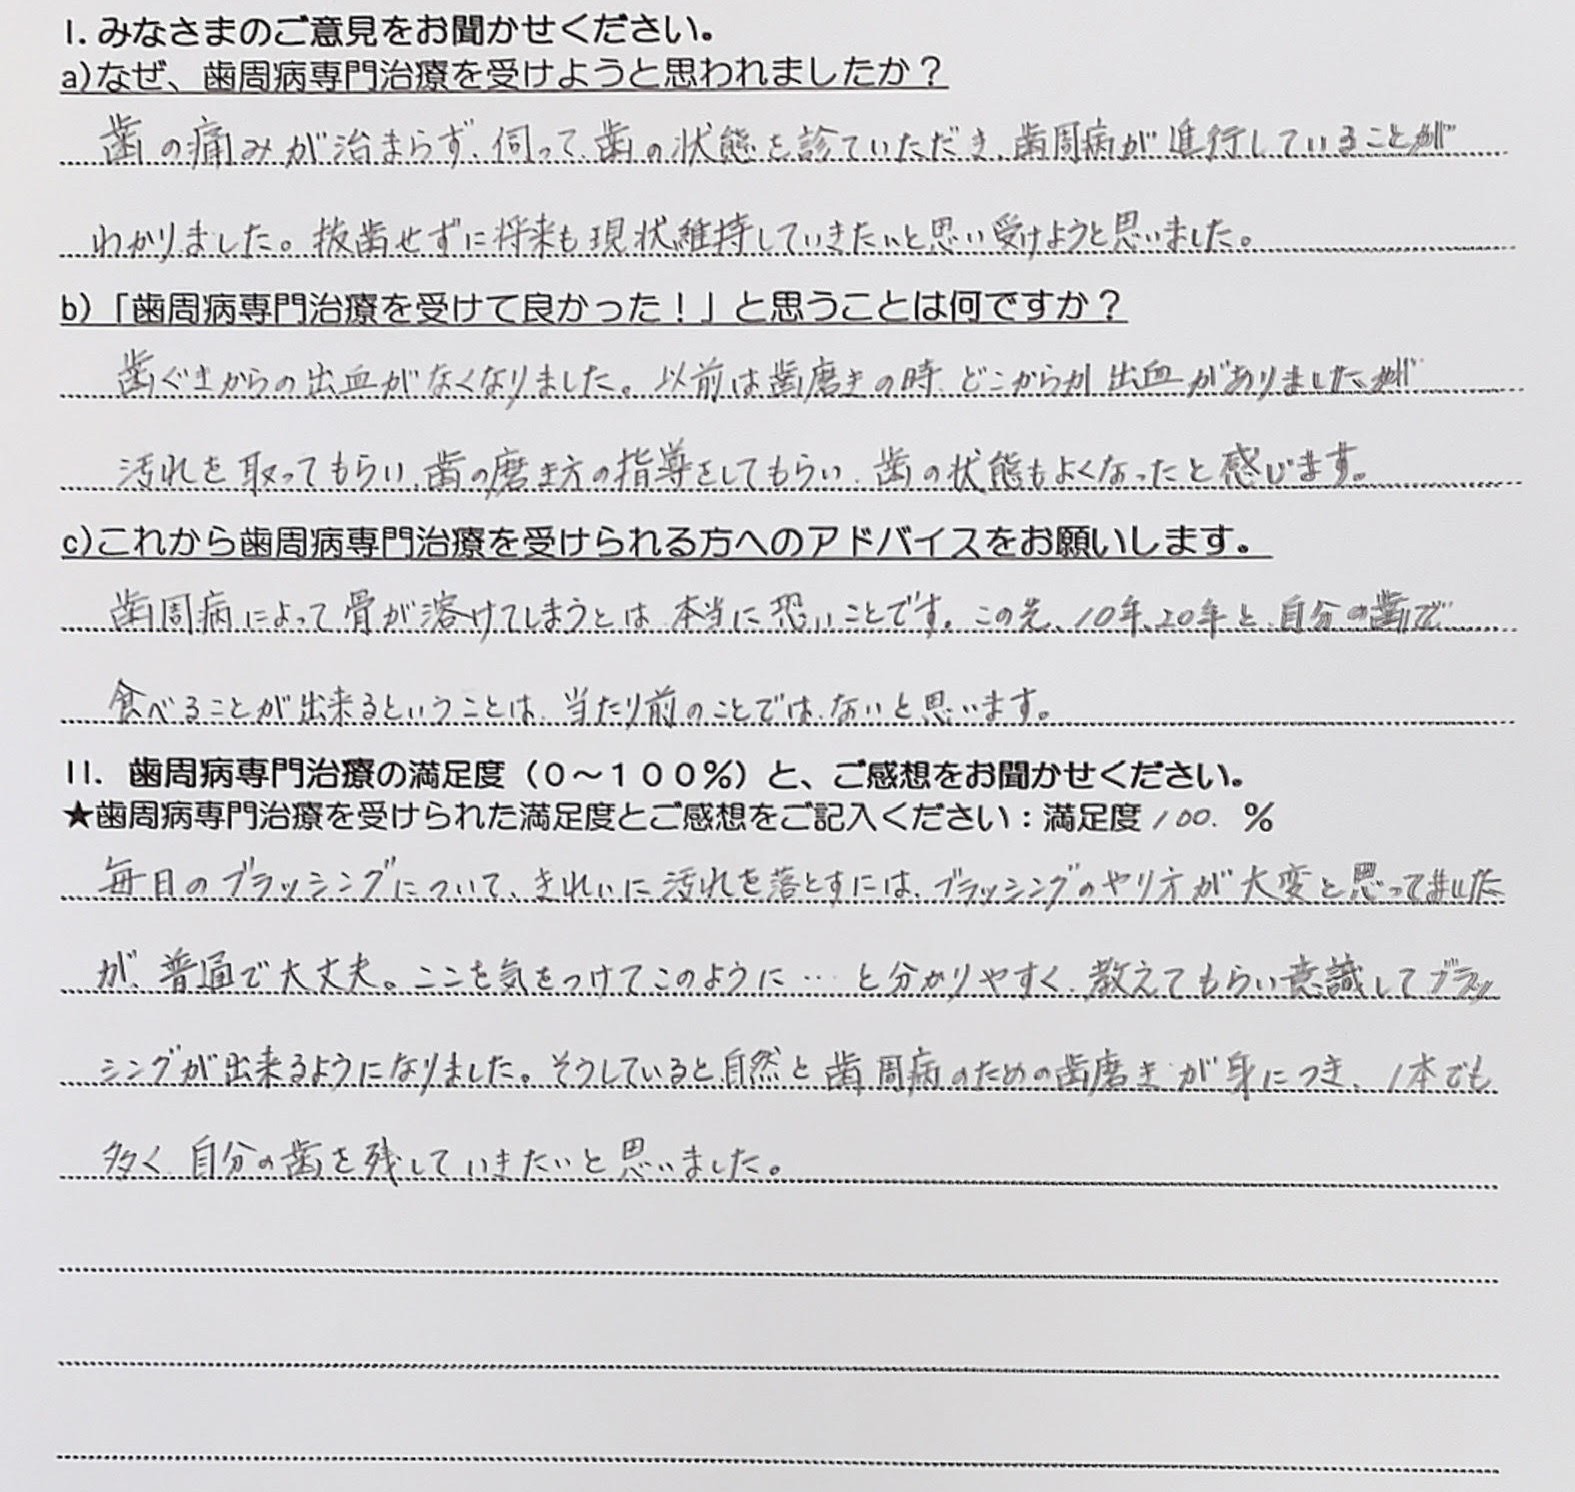 I. みなさまのご意見をお聞かせください。
a)なぜ、歯周病専門治療を受けようと思われましたか？
歯の痛みが治まらず、伺って、歯の状態を診ていただき、歯周病が進行していることが
わかりました。抜歯せずに将来も現状維持していきたいと思い受けようと思いました。
b)「歯周病専門治療を受けて良かった！」と思うことは何ですか？
歯ぐきからの出血がなくなりました。以前は歯磨きの時、どこからか出血がありましたが
汚れを取ってもらい、歯の磨き方の指導をしてもらい、歯の状態もよくなったと感じます。
c)これから歯周病専門治療を受けられる方へのアドバイスをお願いします。
歯周病によって骨が溶けてしまうとは、本当に恐いことです。この先、10年、20年と、自分の歯で
食べることが出来るということは、当たり前のことでは、ないと思います。
II. 歯周病専門治療の満足度（０～１００％）と、ご感想をお聞かせください。
★歯周病専門治療を受けられた満足度とご感想をご記入ください：満足度 100. ％
毎日のブラッシングについて、きれいに汚れを落とすには、ブラッシングのやり方が大変と思ってました
が、普通で大丈夫。ここを気をつけてこのように…と分かりやすく、教えてもらい意識してブラッ
シングが出来るようになりました。そうしていると自然と歯周病のための歯磨きが身につき、1本でも
多く、自分の歯を残していきたいと思いました。